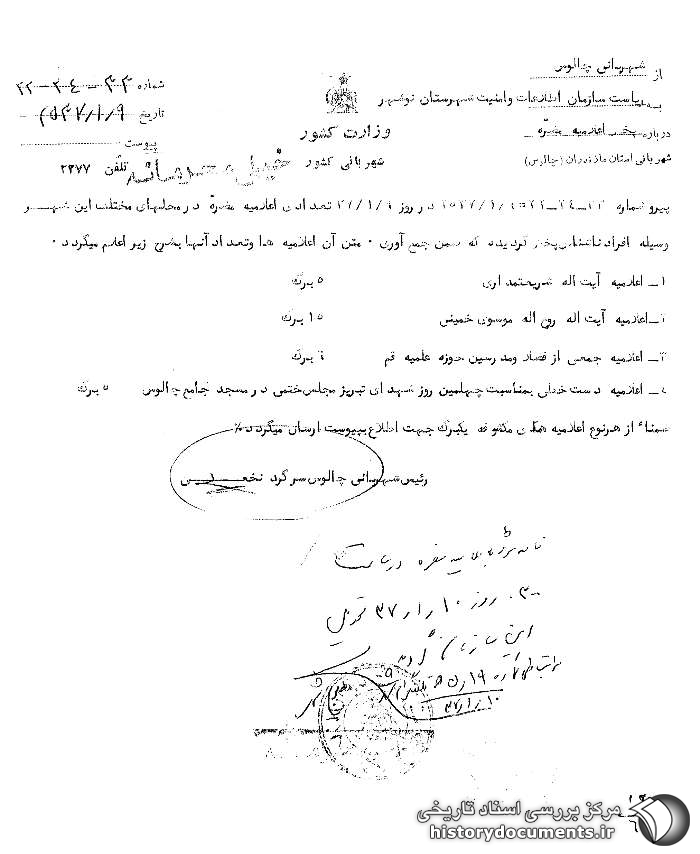 از شهربانی چالوس
به ریاست سازمان اطلاعات و امنیت شهرستان نوشهر
درباره پخش اعلامیه مضره
شهربانی استان مازندران (چالوس)
وزارت کشور
شهربانی کشور
شماره ۳۳-۲۴-۲۲
تاریخ ۲۵۳۷/۱/۹
پیوست
تلفن ۲۲۷۷
خیلی محرمانه
پیرو شماره در روز ۳۷/۱/۹ تعدادی اعلامیه مضره در محلهای مختلف این شهر
وسیله افراد ناشناس پخش گردیده که ضمن جمع آوری ۰ متن آن اعلامیه ها و تعداد آنها بشرح زیر اعلام میگردد ۰
۱ـ اعلامیه آیت اله شریعتمداری ۵ برگ
۲ـ اعلامیه آیت اله روح اله موسوی خمینی ۱۵ برگ
۳ـ اعلامیه جمعی از فضلا و مدرسین حوزه علمیه قم ۶ برگ
۴ـ اعلامیه دست خطی بمناسبت چهلمین روز شهدای تبریز مجلس ختمی در مسجد جامع چالوس ۵ برگ
ضمناً از هر نوع اعلامیه های مکشوفه یکبرگ جهت اطلاع بپیوست ارسال میگردد٪
رئیس شهربانی چالوس سرگرد
روز ۳۷/۱/۱۰ تحویل
این سازمان گردید
۳۷/۱/۱۰
مرکز بررسی اسناد تاریخی
historydocuments.ir